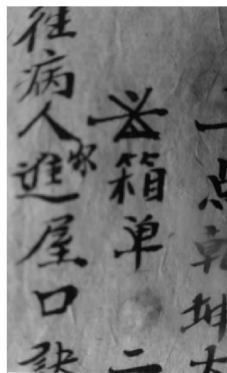 一点乾坤大
箱单 二
往病人家進屋口訣